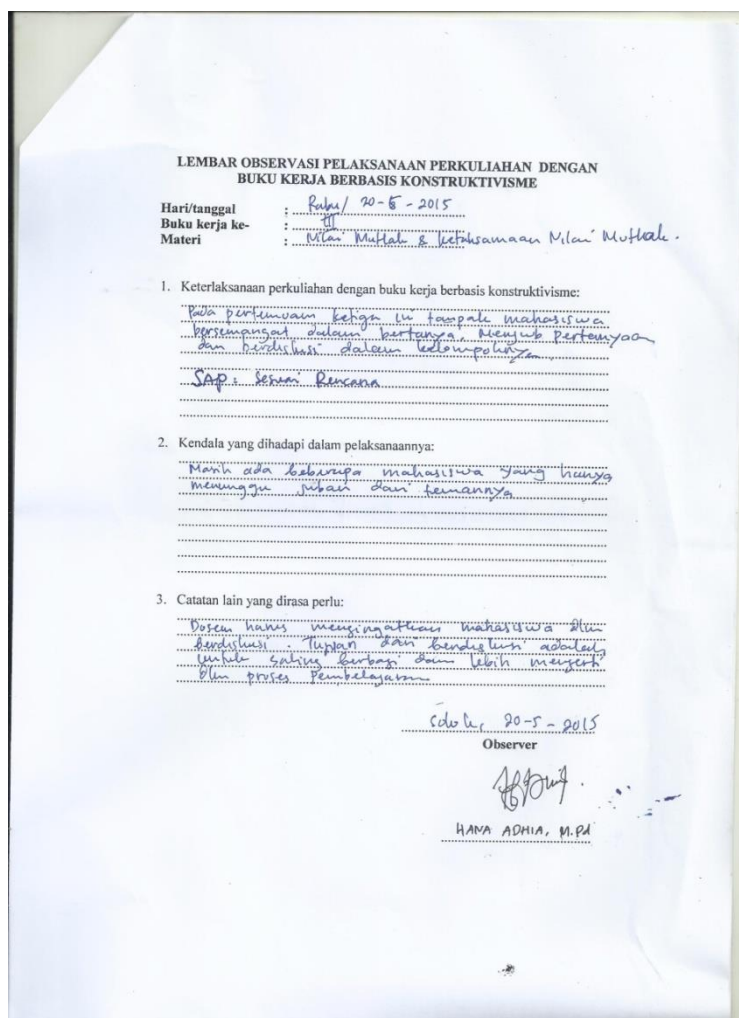 LEMBAR OBSERVASI PELAKSANAAN PERKULIAHAN DENGAN
BUKU KERJA BERBASIS KONSTRUKTIVISME
Hari/tanggal : Rabu/ 20-5-2015
Buku kerja ke- : III
Materi : Nilai Mutlak & ketaksamaan Nilai Mutlak.
1. Keterlaksanaan perkuliahan dengan buku kerja berbasis konstruktivisme:
Pada pertemuan ketiga ini tampak mahasiswa
bersemangat dalam bertanya, menjwb pertanyaan
dan berdiskusi dalam kelompoknya
SAP : Sesuai Rencana
2. Kendala yang dihadapi dalam pelaksanaannya:
Masih ada beberapa mahasiswa yang hanya
menunggu jwban dari temannya
3. Catatan lain yang dirasa perlu:
Dosen harus mengingatkan mahasiswa dlm
berdiskusi. Tujuan dari berdiskusi adalah
untuk saling berbagi dan lebih mengerti
dlm proses Pembelajaran
20-5-2015
Observer
HANA ADHIA, M.Pd